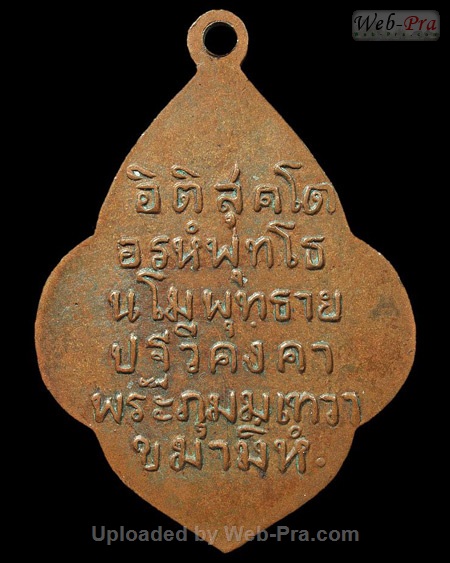 Web-Pra
Web-Pra.com
อิติสุคโต
อรหํพุทโธ
นโมพุทธาย
ปฐวีคงคา
พระภุมมเทวา
ขมามิหํ.
Uploaded by Web-Pra.com